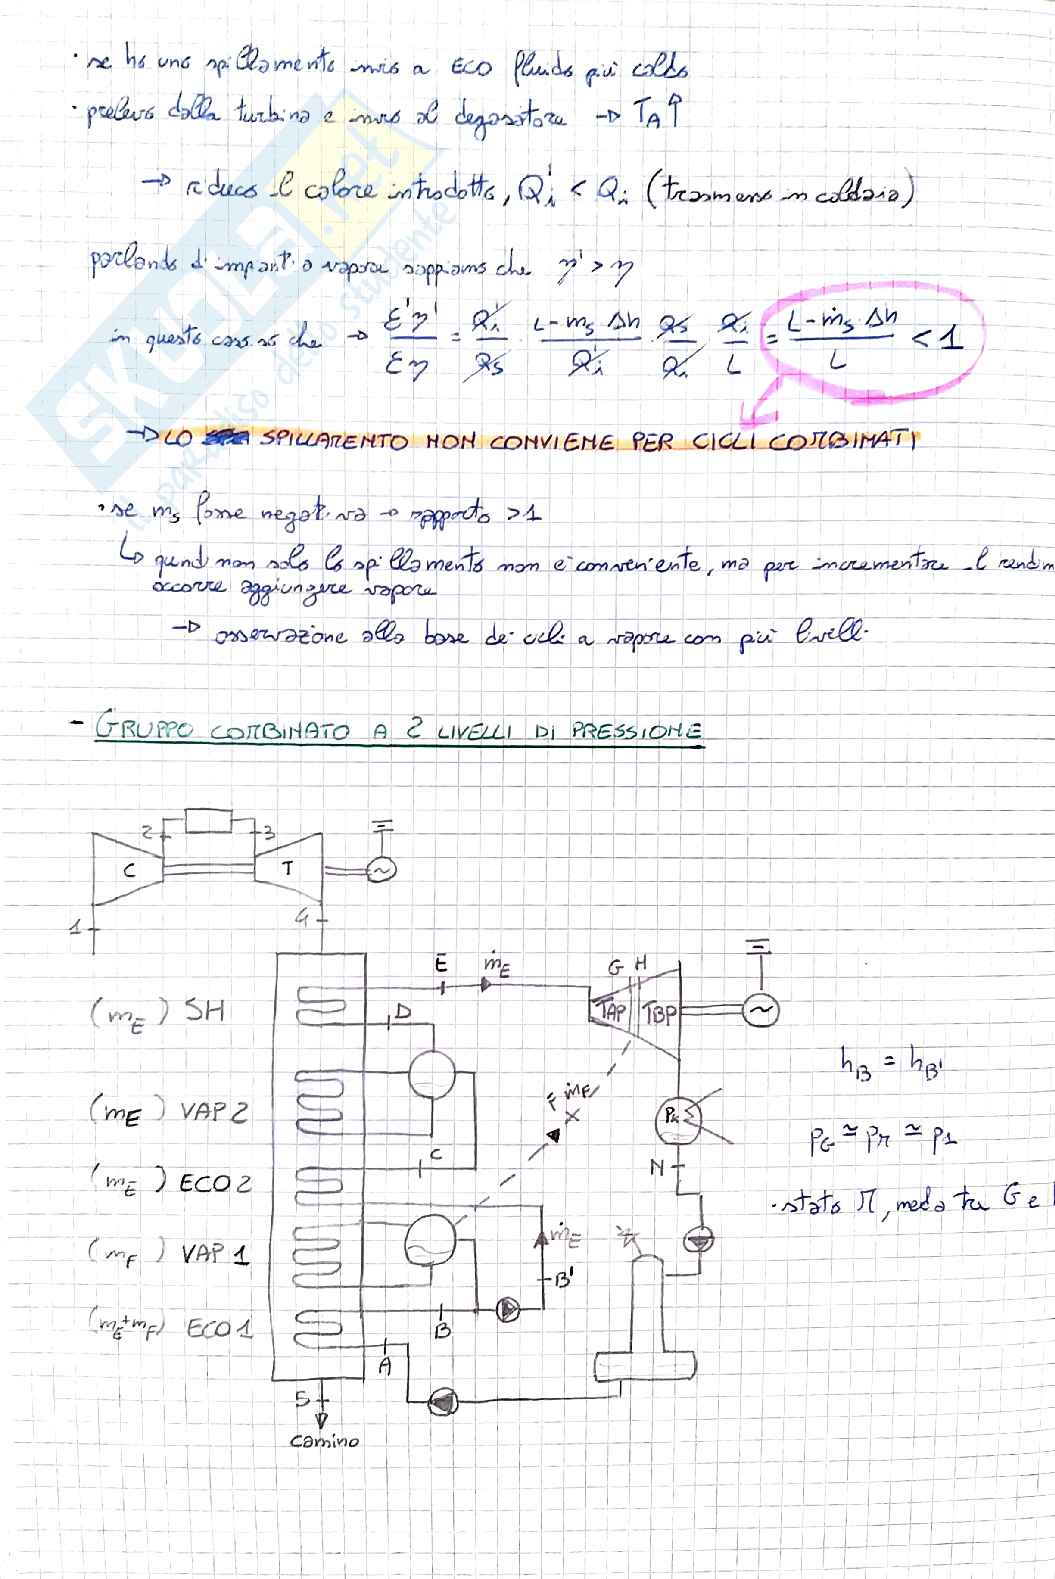 · se ho uno spillamento invio a ECO fluido più caldo
· prelevo dalla turbina e invio al degasatore → TA↑
→ riduco il calore introdotto, Q'i < Qi (trasmesso in caldaia)
parlando di impianti a vapore sappiamo che η' > η
in questo caso so che → ε'η'/εη = Q'i/Qs · (L - ṁs Δh)/Q'i · Qs/Qi · Qi/L = (L - ṁs Δh)/L < 1
→ LO SPILLAMENTO NON CONVIENE PER CICLI COMBINATI
· se ms fosse negativa → rapporto > 1
↳ quindi non solo lo spillamento non è conveniente, ma per incrementare il rendim
occorre aggiungere vapore
→ osservazione alla base dei cicli a vapore con più livelli
- GRUPPO COMBINATO A 2 LIVELLI DI PRESSIONE
2 3
C T ~
1 4
E ṁE G H
(mE) SH D TAP TBP ~
hB = hB'
F ṁF
(mE) VAP2 Pk
pG ≃ pM ≃ p1
C
(mE) ECO2 N
· stato M, media tra G e
(mF) VAP1 ṁE
B'
(mE+mF) ECO1 B
A
5
camino
SKUOLA.net
il paradiso dello studente